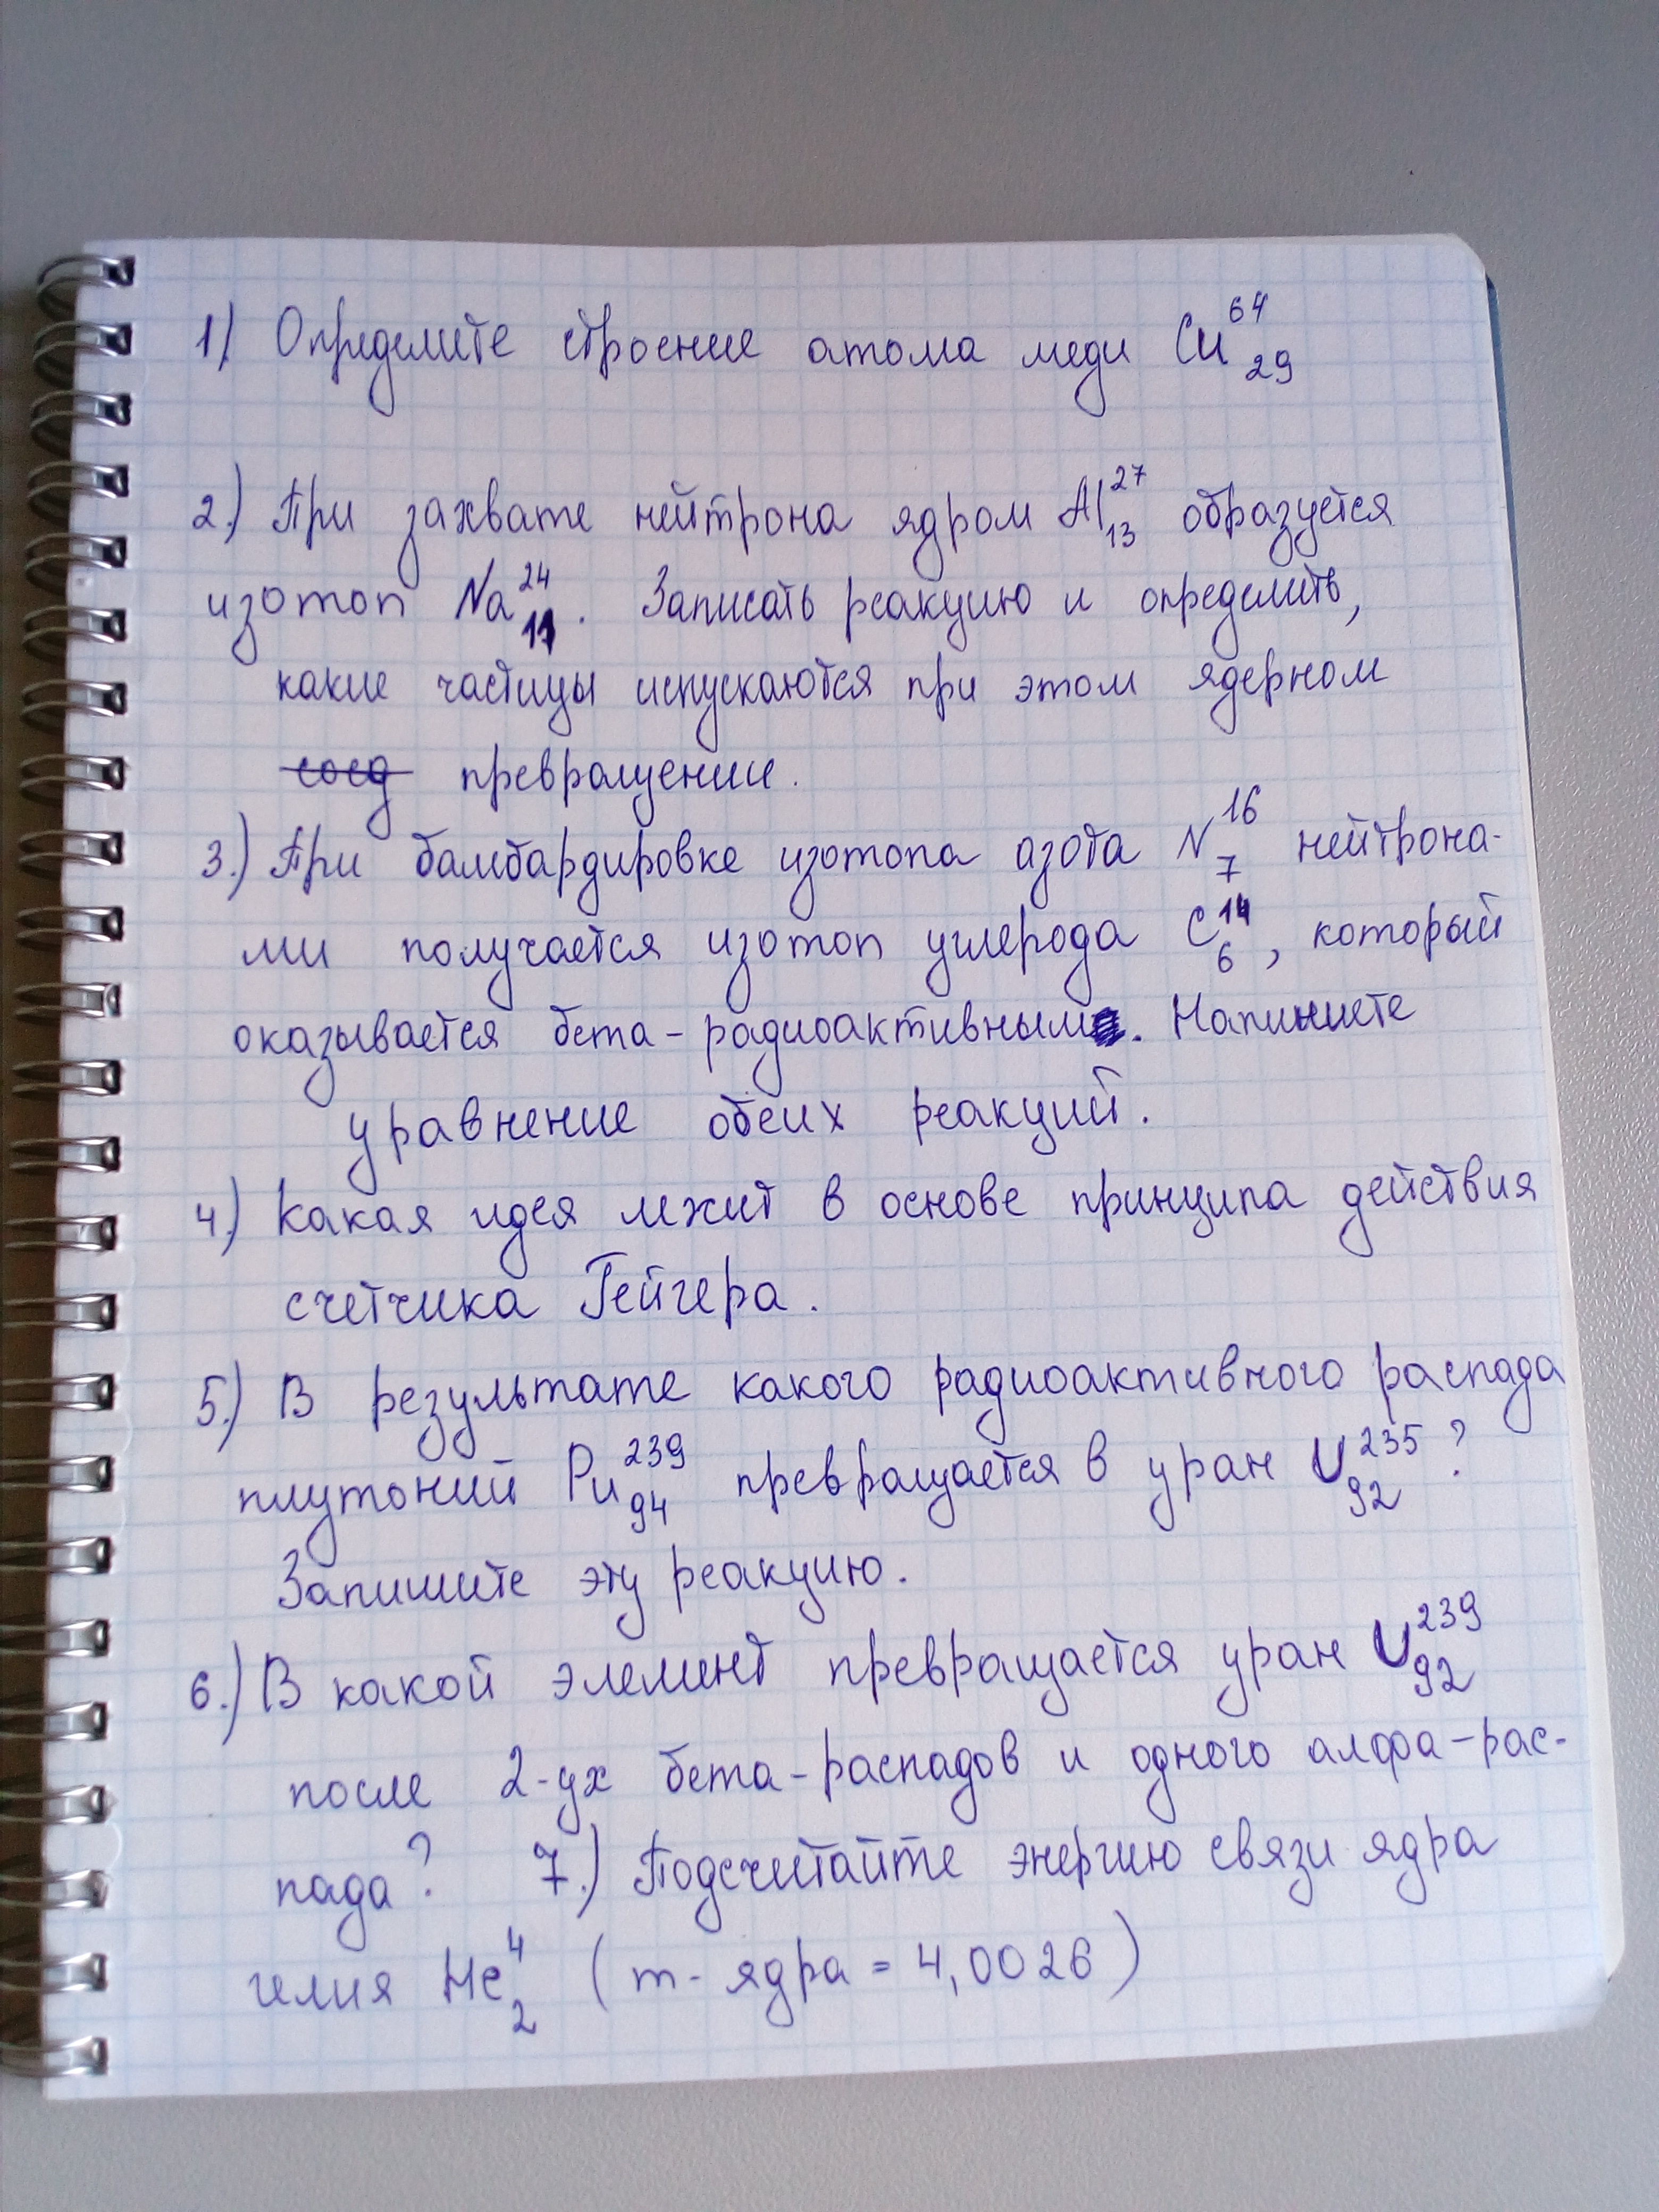 1) Определите строение атома меди Cu⁶⁴₂₉
2.) При захвате нейтрона ядром Al²⁷₁₃ образуется
изотоп Na²⁴₁₁. Записать реакцию и определить,
какие частицы испускаются при этом ядерном
соед превращении.
3.) При бамбардировке изотопа азота N¹⁶₇ нейтрона-
ми получается изотоп углерода C¹⁴₆, который
оказывается бета-радиоактивным. Напишите
уравнение обеих реакций.
4.) Какая идея лежит в основе принципа действия
счетчика Гейгера.
5.) В результате какого радиоактивного распада
плутоний Pu²³⁹₉₄ превращается в уран U²³⁵₉₂?
Запишите эту реакцию.
6.) В какой элемент превращается уран U²³⁹₉₂
после 2-ух бета-распадов и одного алфа-рас-
пада? 7.) Подсчитайте энергию связи ядра
гелия He⁴₂ (m- ядра = 4,0026)